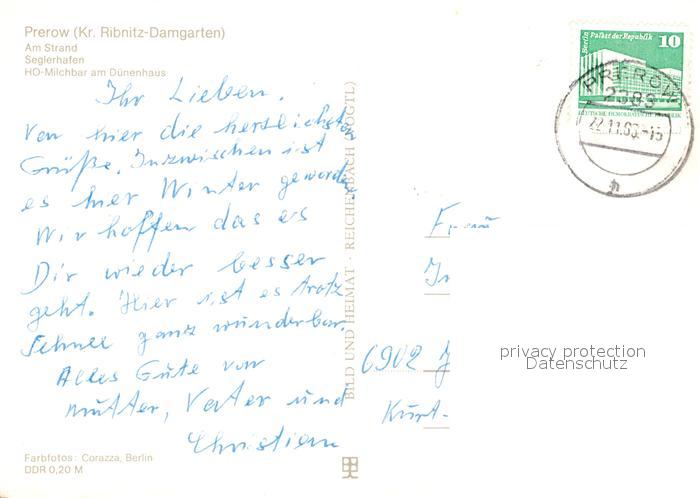 Prerow (Kr. Ribnitz-Damgarten)
Am Strand
Seglerhafen
HO-Milchbar am Dünenhaus
Ihr Lieben.
Von hier die herzlichsten
Grüße. Inzwischen ist
es hier Winter geworden.
Wir hoffen das es
Dir wieder besser
geht. Hier ist es trotz
Schnee ganz wunderbar.
Alles Gute von
Mutter, Vater und
Christian
Farbfotos: Corazza, Berlin
DDR 0,20 M
BILD UND HEIMAT · REICHENBACH (VOGTL)
Berlin Palast der Republik 10
DEUTSCHE DEMOKRATISCHE REPUBLIK
PREROW
2383
22.11.
Frau
6902 J
Kurt-
privacy protection
Datenschutz